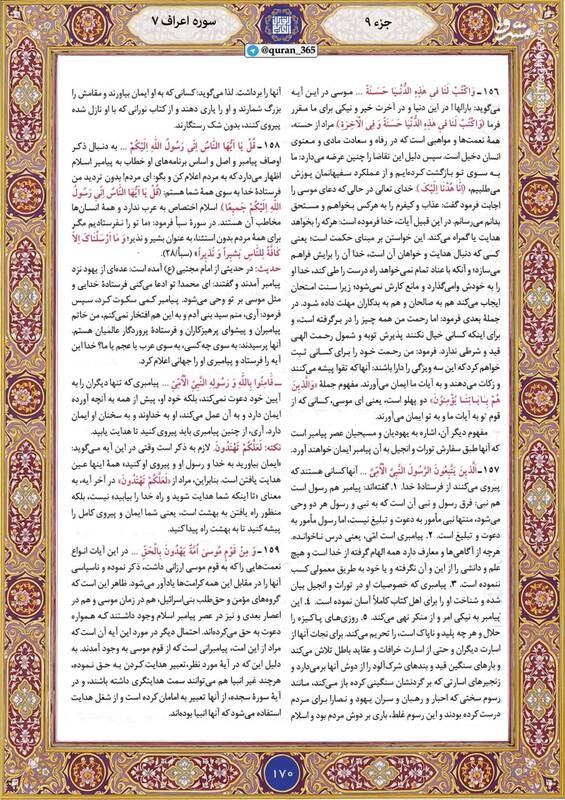 جزء ۹
سوره اعراف ۷
@quran_365
مشرق
۱۵۶ـ وَاكْتُبْ لَنَا فِي هَذِهِ الدُّنْيَا حَسَنَةً ... موسی در این آیه
می‌گوید: بارالها! در این دنیا و در آخرت خیر و نیکی برای ما مقرر
فرما (وَاكْتُبْ لَنَا فِي هَذِهِ الدُّنْيَا حَسَنَةً وَفِي الْآخِرَةِ) مراد از حسنه،
همهٔ نعمت‌ها و مواهبی است که در رفاه و سعادت مادی و معنوی
انسان دخیل است. سپس دلیل این تقاضا را چنین عرضه می‌دارد: ما
به سوی تو بازگشت کرده‌ایم و از عملکرد سفیهانمان پوزش
می‌طلبیم، (إِنَّا هُدْنَا إِلَيْكَ) خدای تعالی در حالی که دعای موسی را
اجابت فرمود گفت: عذاب و کیفرم را به هرکس بخواهم و مستحق
بدانم می‌رسانم. در این قبیل آیات، خدا فرموده است: هرکه را بخواهد
هدایت یا گمراه می‌کند. این خواستن بر مبنای حکمت است؛ یعنی
کسی که دنبال هدایت و خواهان آن است، خدا آن را برایش فراهم
می‌سازد؛ و آنکه با عناد تمام نمی‌خواهد راه درست را طی کند، خدا او
را به خودش وامی‌گذارد و مانع کارش نمی‌شود؛ زیرا سنت امتحان
ایجاب می‌کند هم به صالحان و هم به بدکاران مهلت داده شود. در
جملهٔ بعدی فرمود: اما رحمت من همه چیز را در برگرفته است، و
برای اینکه کسانی خیال نکنند پذیرش توبه و شمول رحمت الهی
قید و شرطی ندارد. فرمود: من رحمت خود را برای کسانی ثبت
خواهم کرد که این سه ویژگی را دارا باشند: آنها که تقوا پیشه می‌کنند
و زکات می‌دهند و به آیات ما ایمان می‌آورند. مفهوم جملهٔ «وَالَّذِينَ
هُمْ بِآيَاتِنَا يُؤْمِنُونَ» دو پهلو است، یعنی ای موسی، کسانی که از
قوم تو به آیات ما و به تو ایمان می‌آورند.
مفهوم دیگر آن، اشاره به یهودیان و مسیحیان عصر پیامبر است
که آنها طبق سفارش تورات و انجیل به آن پیامبر ایمان خواهند آورد.
۱۵۷ـ الَّذِينَ يَتَّبِعُونَ الرَّسُولَ النَّبِيَّ الْأُمِّيَّ ... آنها کسانی هستند که
پیروی می‌کنند از فرستادهٔ خدا. ۱. گفته‌اند: پیامبر هم رسول است
هم نبی؛ فرق رسول و نبی آن است که به نبی و رسول هر دو وحی
می‌شود، منتها نبی مأمور به دعوت و تبلیغ نیست، اما رسول مأمور به
دعوت و تبلیغ است. ۲. پیامبری است امّی، یعنی درس ناخوانده.
هرچه از آگاهی‌ها و معارف دارد همه الهام گرفته از خدا است و هیچ
علم و دانشی را از این و آن نگرفته و یا خود به طریق معمولی کسب
ننموده است. ۳. پیامبری که خصوصیات او در تورات و انجیل بیان
شده و شناخت او را برای اهل کتاب کاملاً آسان نموده است. ۴. این
پیامبر به نیکی امر و از منکر نهی می‌کند. ۵. روزی‌های پاکیزه را
حلال و هر چه پلید و ناپاک است، را تحریم می‌کند. برای نجات آنها از
اسارت دیگران و حتی از اسارت خرافات و عقاید باطل تلاش می‌کند
و بارهای سنگین قید و بندهای شرک‌آلود را از دوش آنها برمی‌دارد و
زنجیرهای اسارتی که بر گردنشان سنگینی کرده باز می‌کند، مانند
رسوم سختی که احبار و رهبان و سران یهود و نصارا برای مردم
درست کرده بودند و این رسوم غلط، باری بر دوش مردم بود و اسلام
آنها را برداشت. لذا می‌گوید: کسانی که به او ایمان بیاورند و مقامش را
بزرگ شمارند و او را یاری دهند و از کتاب نورانی که با او نازل شده
پیروی کنند، بدون شک رستگارند.
۱۵۸ـ قُلْ يَا أَيُّهَا النَّاسُ إِنِّي رَسُولُ اللهِ إِلَيْكُمْ ... به دنبال ذکر
اوصاف پیامبر و اصل و اساس برنامه‌های او خطاب به پیامبر اسلام
اظهار می‌دارد که به مردم اعلام کن و بگو: ای مردم! بدون تردید من
فرستادهٔ خدا به سوی همهٔ شما هستم، (قُلْ يَا أَيُّهَا النَّاسُ إِنِّي رَسُولُ
اللهِ إِلَيْكُمْ جَمِيعًا) اسلام اختصاص به عرب ندارد و همهٔ انسان‌ها
مخاطب آن هستند. در سورهٔ سبأ فرمود: «ما تو را نفرستادیم مگر
برای همهٔ مردم بدون استثنا، به عنوان بشیر و نذیر؛ وَ مَا أَرْسَلْنَاكَ إِلَّا
كَافَّةً لِلنَّاسِ بَشِيراً وَ نَذِيراً» (سبأ/۲۸).
حدیث: در حدیثی از امام مجتبی (ع) آمده است: عده‌ای از یهود نزد
پیامبر آمدند و گفتند: ای محمد! تو ادعا می‌کنی فرستادهٔ خدایی و
مثل موسی بر تو وحی می‌شود. پیامبر کمی سکوت کرد، سپس
فرمود: آری، منم سید بنی آدم و به این هم افتخار نمی‌کنم، من خاتم
پیامبران و پیشوای پرهیزکاران و فرستادهٔ پروردگار عالمیان هستم.
آنها پرسیدند: به سوی چه کسی، به سوی عرب یا عجم یا ما؟ خدا این
آیه را فرستاد و پیامبری او را جهانی اعلام کرد.
ـ فَآمِنُوا بِاللهِ وَ رَسُولِهِ النَّبِيِّ الْأُمِّيِّ ... پیامبری که تنها دیگران را به
آیین خود دعوت نمی‌کند، بلکه خود او، پیش از همه به آنچه آورده
ایمان دارد و به آن عمل می‌کند، او به خداوند و به سخنان او ایمان
دارد. آری، از چنین پیامبری باید پیروی کنید تا هدایت یابید.
نکته: لَعَلَّكُمْ تَهْتَدُونَ. لازم به ذکر است وقتی در این آیه می‌گوید:
«ایمان بیاورید به خدا و رسول او و پیروی او کنید» همهٔ اینها عین
هدایت یافتن است. بنابراین، مراد از «لَعَلَّكُمْ تَهْتَدُونَ» در آخر آیه، به
معنای «تا اینکه شما هدایت شوید و راه خدا را بیابید» نیست، بلکه
منظور راه یافتن به بهشت است، یعنی شما ایمان و پیروی کامل را
پیشه کنید تا به بهشت راه پیدا کنید.
۱۵۹ـ وَ مِنْ قَوْمِ مُوسَى أُمَّةٌ يَهْدُونَ بِالْحَقِّ ... در این آیات انواع
نعمت‌هایی را که به قوم موسی ارزانی داشت، ذکر نموده و ناسپاسی
آنها را در مقابل این همه کرامت‌ها یادآور می‌شود. ظاهر این است که
گروه‌های مؤمن و حق‌طلب بنی‌اسرائیل، هم در زمان موسی و هم در
اعصار بعدی و نیز در عصر پیامبر اسلام وجود داشتند که همواره
دعوت به حق می‌کرده‌اند. احتمال دیگر در مورد این آیه آن است که
مراد از این امت، پیامبرانی است که از قوم موسی به وجود آمدند. به
دلیل این که در آیهٔ مورد نظر، تعبیر هدایت کردن به حق نموده،
هرچند غیر انبیا هم می‌توانند سمت هدایتگری داشته باشند، و در
آیهٔ سورهٔ سجده، از آنها تعبیر به امامان کرده است و از شغل هدایت
استفاده می‌شود که آنها انبیا بوده‌اند.
۱۷۰